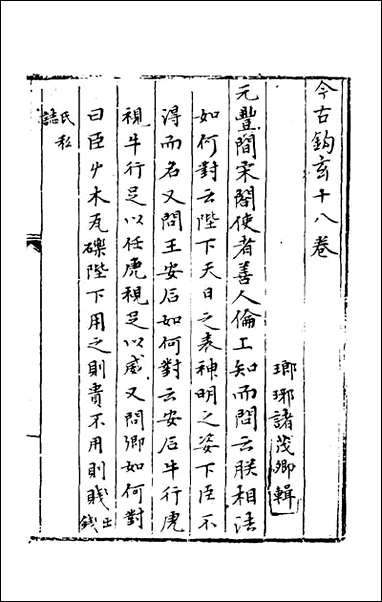 今古鈎玄十八卷
瑯琊諸茂卿輯
元豐間宋閤使者善人倫工知而問云朕相法
如何對云陛下天日之表神明之姿下臣不
得而名又問王安石如何對云安石牛行虎
視牛行足以任虎視足以威又問卿如何對
曰臣艸木瓦礫陛下用之則貴不用則賤出錢
氏私誌